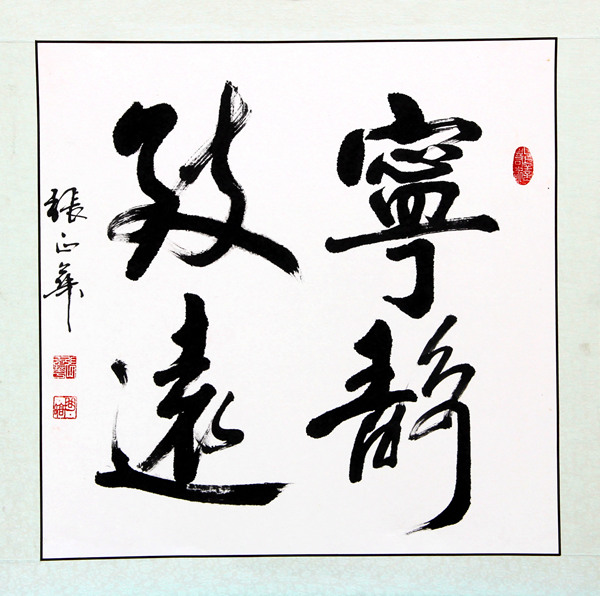 寧靜
致遠
張正華